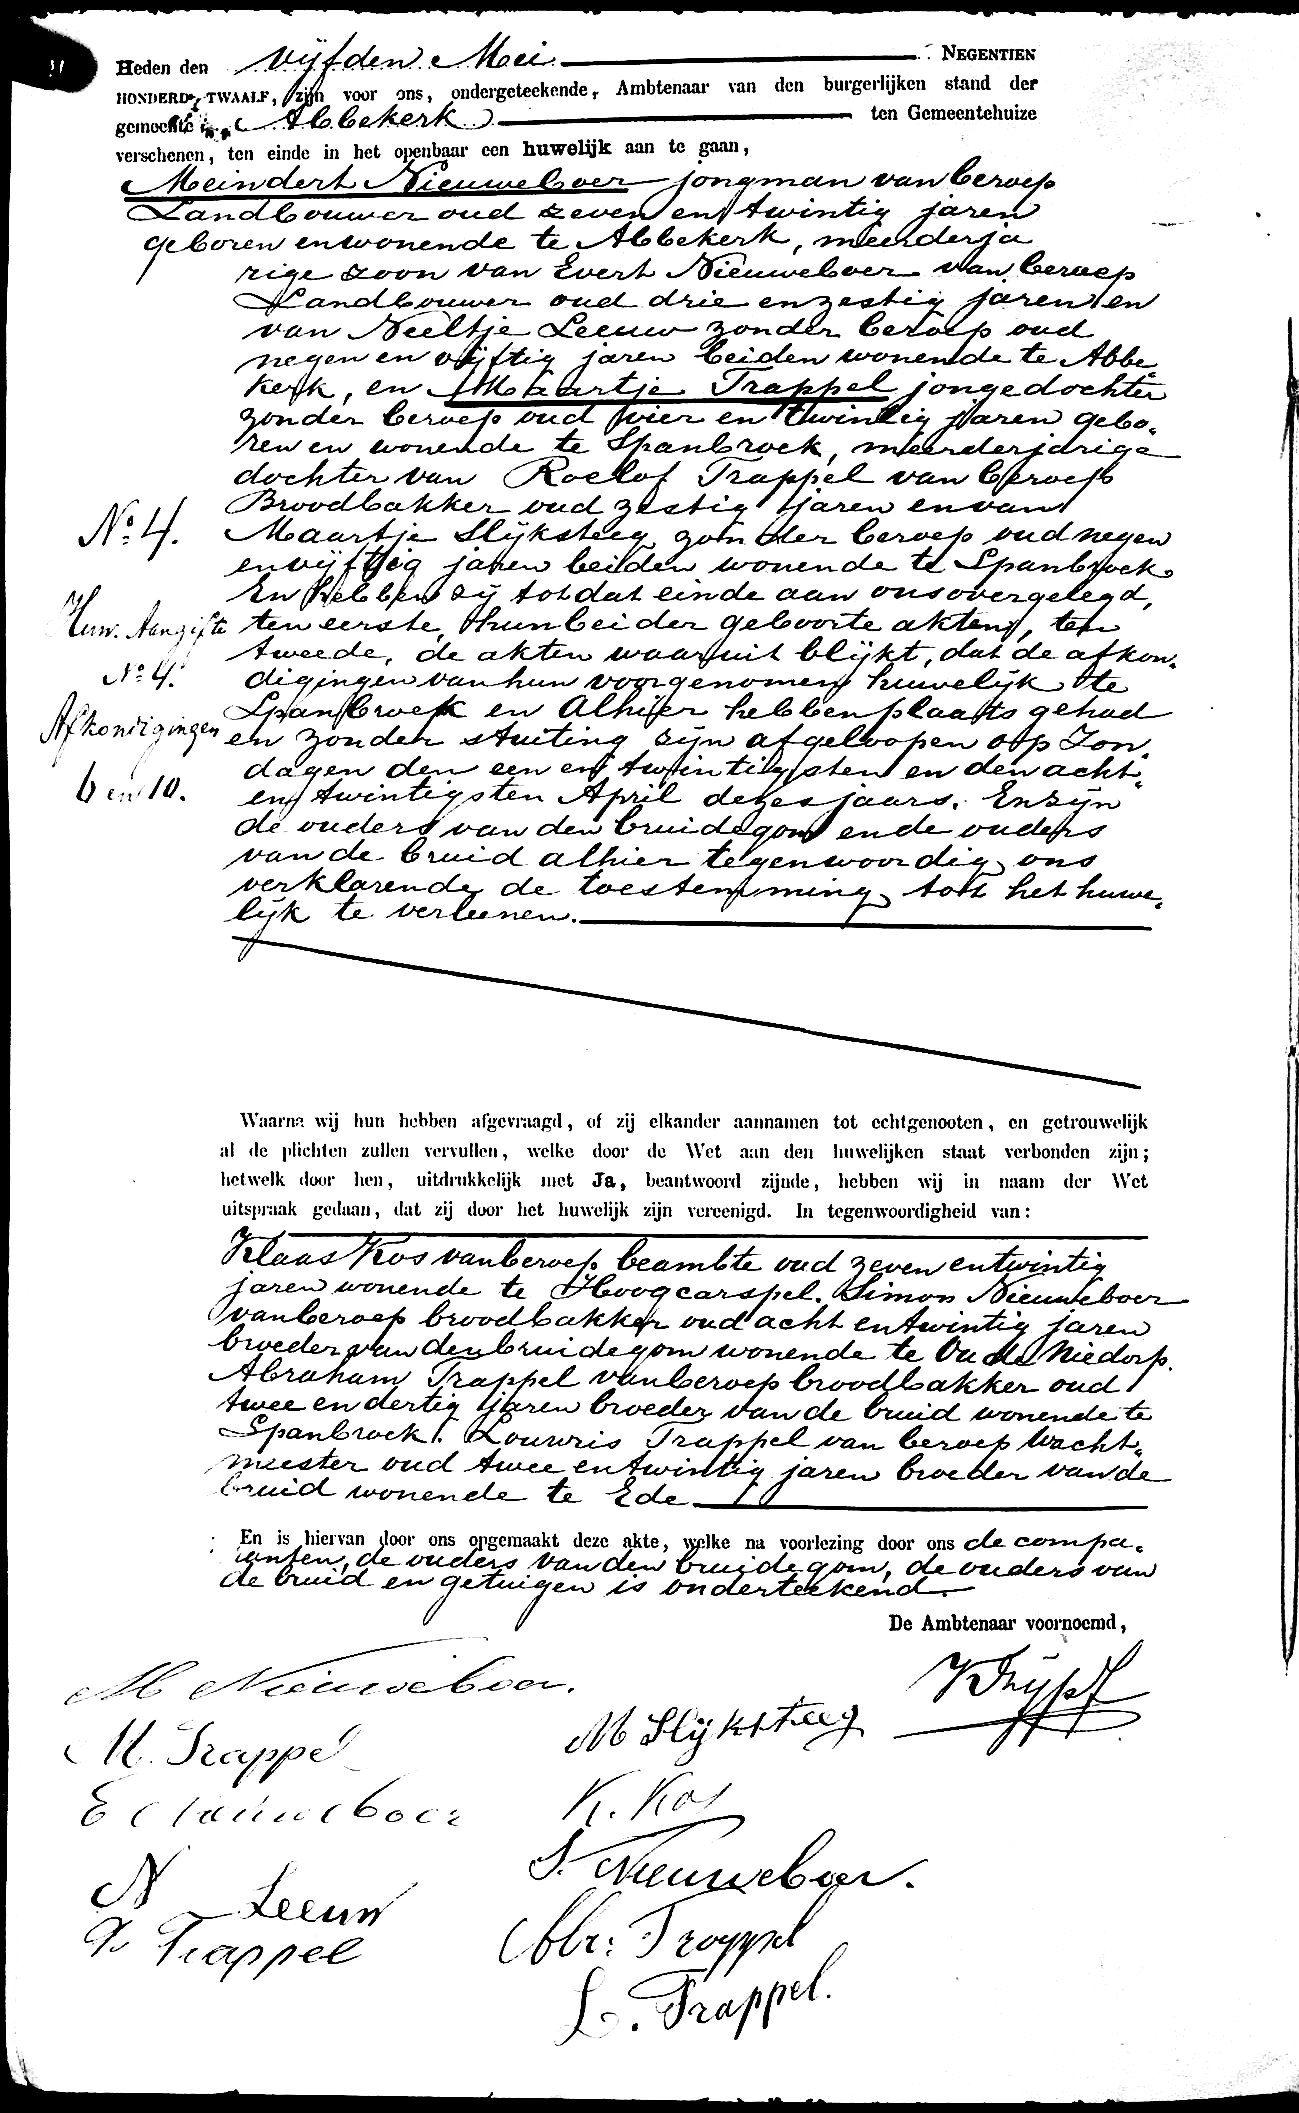 Heden den vijfden Mei NEGENTIEN
HONDERD TWAALF, zijn voor ons, ondergeteekende, Ambtenaar van den burgerlijken stand der
gemeente Abbekerk ten Gemeentehuize
verschenen, ten einde in het openbaar een huwelijk aan te gaan,
Meindert Nieuweboer jongman van beroep
Landbouwer oud zeven en twintig jaren
geboren en wonende te Abbekerk, meerderja
rige zoon van Evert Nieuweboer van beroep
Landbouwer oud drie en zestig jaren en
van Neeltje Leeuw zonder beroep oud
negen en vijftig jaren beiden wonende te Abbe-
kerk, en Maartje Trappel jongedochter
zonder beroep oud vier en twintig jaren gebo-
ren en wonende te Spanbroek, meerderjarige
dochter van Roelof Trappel van beroep
Broodbakker oud zestig jaren en van
No. 4.
Maartje Slijksteeg zonder beroep oud negen
en vijftig jaren beiden wonende te Spanbroek
En hebben zij tot dat einde aan ons overgelegd,
Huw. Aangifte
ten eerste, hun beider geboorte akten, ten
tweede, de akten waaruit blijkt, dat de afkon-
No. 4.
digingen van hun voorgenomen huwelijk te
Spanbroek en Alhier hebben plaats gehad
Afkondigingen
en zonder stuiting zijn afgeloopen op Zon-
dagen den een en twintigsten en den acht-
6 en 10.
en twintigsten April dezes jaars. En zijn
de ouders van den bruidegom en de ouders
van de bruid alhier tegenwoordig ons
verklarende de toestemming tot het huwe-
lijk te verleenen.
Waarna wij hun hebben afgevraagd, of zij elkander aannamen tot echtgenooten, en getrouwelijk
al de plichten zullen vervullen, welke door de Wet aan den huwelijken staat verbonden zijn;
hetwelk door hen, uitdrukkelijk met Ja, beantwoord zijnde, hebben wij in naam der Wet
uitspraak gedaan, dat zij door het huwelijk zijn vereenigd. In tegenwoordigheid van:
Klaas Kos van beroep beambte oud zeven en twintig
jaren wonende te Hoogcarspel. Simon Nieuweboer
van beroep broodbakker oud acht en twintig jaren
broeder van den bruidegom wonende te Oude Niedorp.
Abraham Trappel van beroep broodbakker oud
twee en dertig jaren broeder van de bruid wonende te
Spanbroek. Louwris Trappel van beroep Wacht-
meester oud twee en twintig jaren broeder van de
bruid wonende te Ede
En is hiervan door ons opgemaakt deze akte, welke na voorlezing door ons de compa-
ranten, de ouders van den bruidegom, de ouders van
de bruid en getuigen is onderteekend
De Ambtenaar voornoemd,
M Nieuweboer.
M Slijksteeg
M. Trappel
E Nieuweboer
K. Kos
S. Nieuweboer.
N Leeuw
R Trappel
Abr: Trappel
L. Trappel.